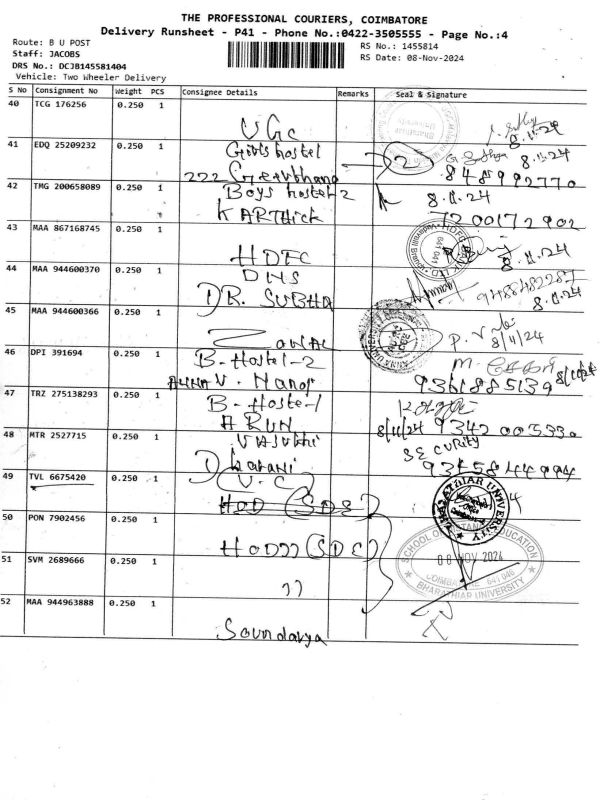 THE PROFESSIONAL COURIERS, COIMBATORE
Delivery Runsheet - P41 - Phone No.:0422-3505555 - Page No.:4
Route: B U POST
Staff: JACOBS
DRS No.: DCJB145581404
Vehicle: Two Wheeler Delivery
RS No.: 1455814
RS Date: 08-Nov-2024
S No Consignment No Weight PCS Consignee Details Remarks Seal & Signature
40 TCG 176256 0.250 1
UGC
8.11.24
41 EDQ 25209232 0.250 1 Girls hostel
8.11.24
222
8489992770
42 TMG 200658089 0.250 1 Boys hostel-2
8.11.24
KARTHICK
7200172902
43 MAA 867168745 0.250 1
HDFC
8.11.24
44 MAA 944600370 0.250 1 DNS
DR. SUBHA
9488482287
8.11.24
45 MAA 944600366 0.250 1
ZONAL
8/11/24
46 DPI 391694 0.250 1 B-Hostel-2
V. Manoj
9361885139 8/11/24
47 TRZ 275138293 0.250 1 B-Hostel-1
ARUN
8/11/24 9342005330
48 MTR 2527715 0.250 1
SECURITY
Dharani
9345844994
49 TVL 6675420 0.250 1 V.C
HOD (SDE)
BHARATHIAR UNIVERSITY
50 PON 7902456 0.250 1
HOD (SDE)
08 NOV 2024
COIMBATORE 641 046
BHARATHIAR UNIVERSITY
51 SVM 2689666 0.250 1
11
52 MAA 944963888 0.250 1
Soundarya